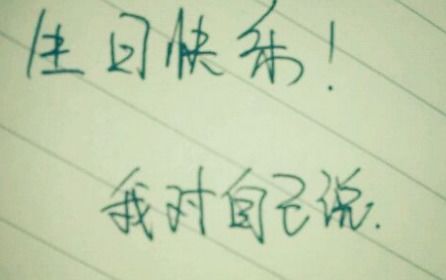 生日快乐！
我对自己说.